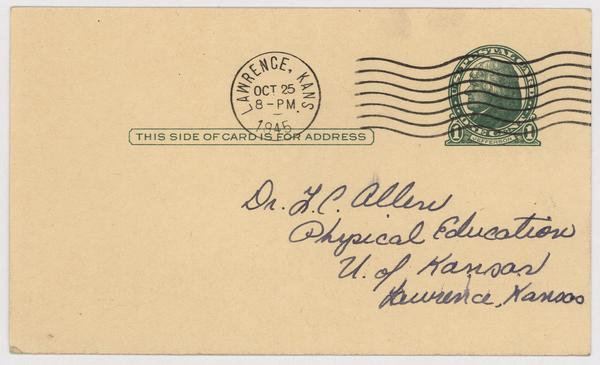 LAWRENCE, KANS.
OCT 25
8-PM
1945
THIS SIDE OF CARD IS FOR ADDRESS
JEFFERSON
Dr. F. C. Allen
Physical Education
U. of Kansas
Lawrence, Kansas